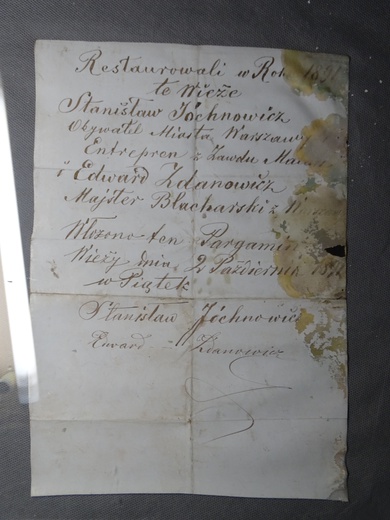 Restaurowali w Roku 1891
te Wieże
Stanisław Jóchnowicz
Obywatel Miasta Warszawy
Entrepren z Zawdu
i Edward Zdanowicz
Majster Blacharski z
Włożono ten Pargamin
Wieży dnia 2 Październik
w Piątek
Stanisław Jóchnowicz
Edward Zdanowicz